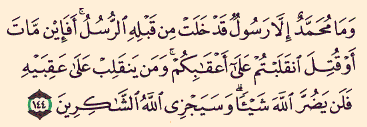 وَمَا مُحَمَّدٌ إِلَّا رَسُولٌ قَدْ خَلَتْ مِن قَبْلِهِ ٱلرُّسُلُ ۚ أَفَإِيْن مَّاتَ
أَوْ قُتِلَ ٱنقَلَبْتُمْ عَلَىٰٓ أَعْقَٰبِكُمْ ۚ وَمَن يَنقَلِبْ عَلَىٰ عَقِبَيْهِ
فَلَن يَضُرَّ ٱللَّهَ شَيْـًٔا ۗ وَسَيَجْزِى ٱللَّهُ ٱلشَّٰكِرِينَ ١٤٤